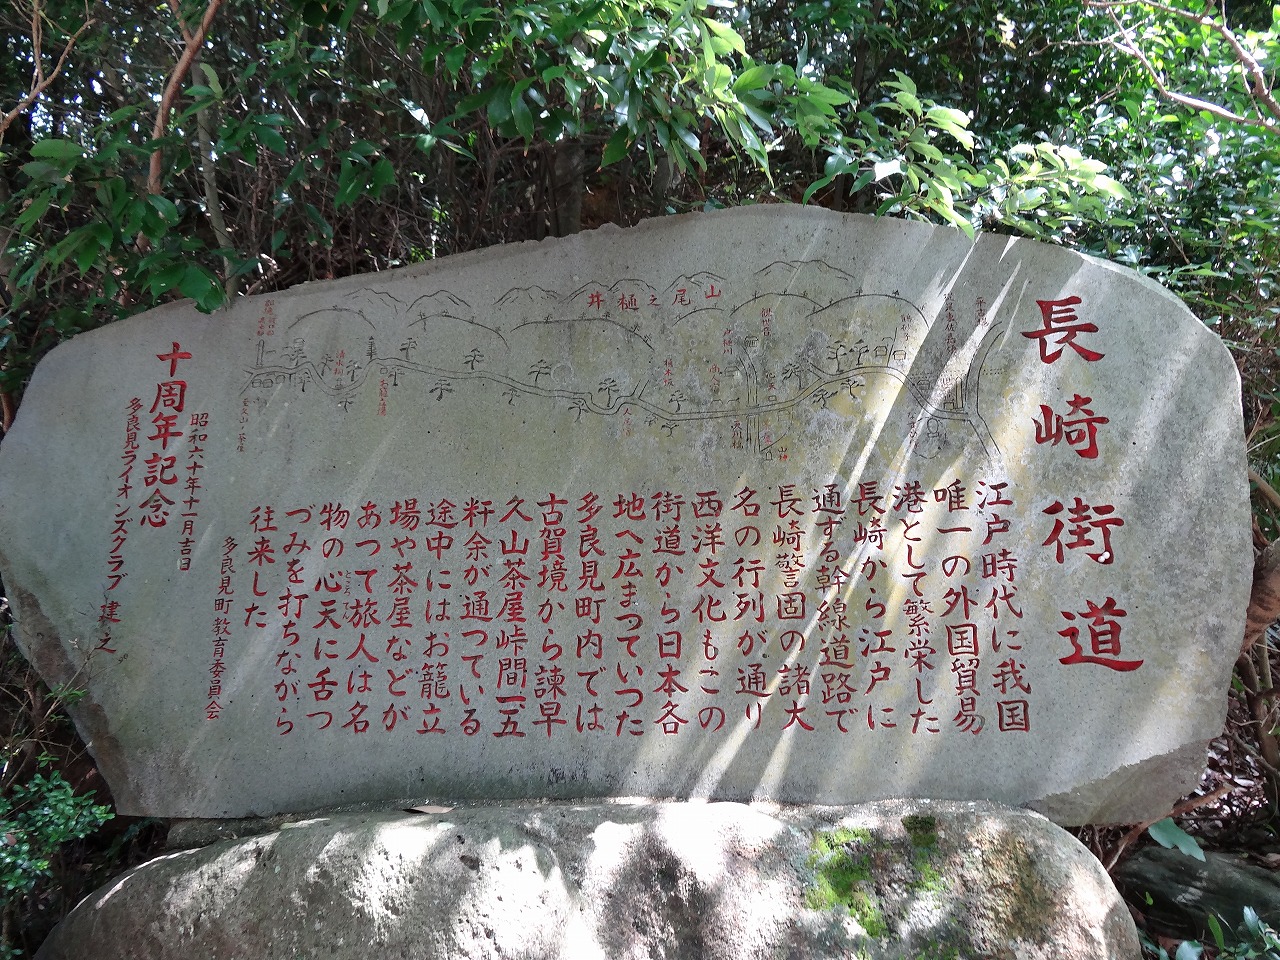 長崎街道
江戸時代に我国
唯一の外国貿易
港として繁栄した
長崎から江戸に
通ずる幹線道路で
長崎警固の諸大
名の行列が通り
西洋文化もこの
街道から日本各
地へ広まつていつた
多良見町内では
古賀境から諫早
久山茶屋峠間一五
粁余が通つている
途中にはお籠立
場や茶屋などが
あつて旅人は名
物の心天に舌つ
づみを打ちながら
往来した
多良見町教育委員会
昭和六十年十一月吉日
十周年記念
多良見ライオンズクラブ 建之
井樋之尾山